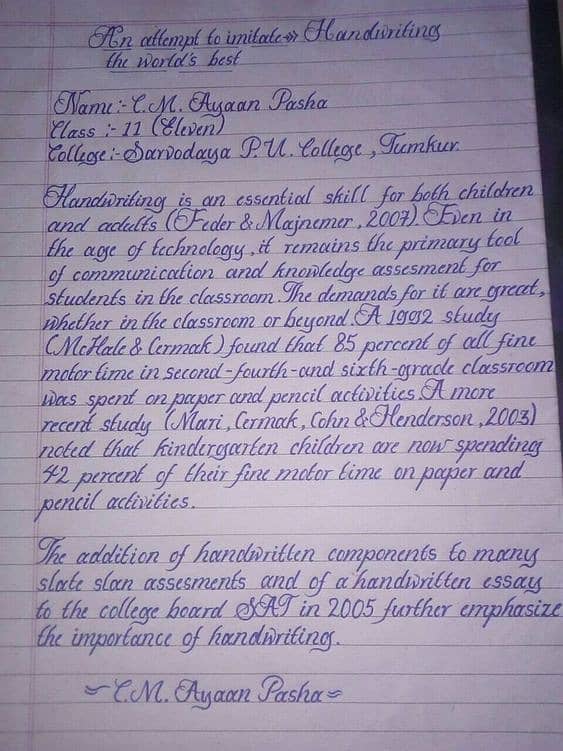 An attempt to imitate Handwriting
the world's best
Name:- C.M. Ayaan Pasha
Class :- 11 (Eleven)
College:- Sarvodaya P.U. College, Tumkur.
Handwriting is an essential skill for both children
and adults (Feder & Majnemer, 2007). Even in
the age of technology, it remains the primary tool
of communication and knowledge assesment for
students in the classroom. The demands for it are great,
whether in the classroom or beyond. A 1992 study
(McHale & Cermak) found that 85 percent of all fine
motor time in second-fourth-and sixth-grade classroom
was spent on paper and pencil activities. A more
recent study (Mari, Cermak, Cohn & Henderson, 2003)
noted that kindergarten children are now spending
42 percent of their fine motor time on paper and
pencil activities.
The addition of handwritten components to many
slate slan assesments and of a handwritten essay
to the college board SAT in 2005 further emphasize
the importance of handwriting.
~ C.M. Ayaan Pasha ~